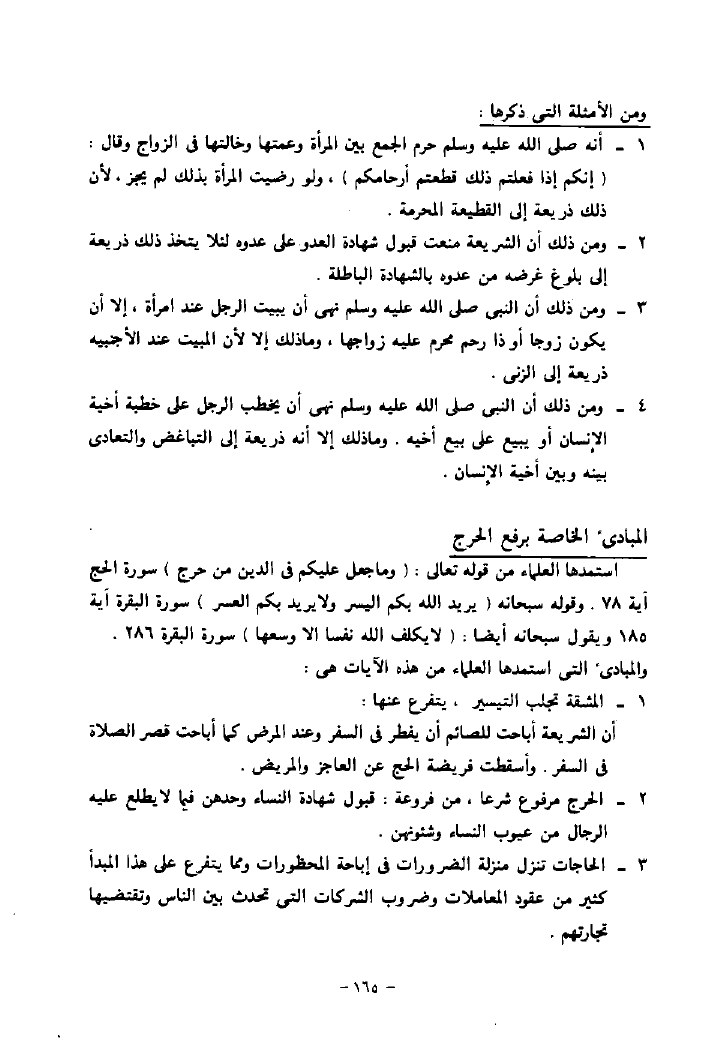 ومن الأمثلة التى ذكرها :
١ ـ أنه صلى الله عليه وسلم حرم الجمع بين المرأة وعمتها وخالتها فى الزواج وقال :
( إنكم إذا فعلتم ذلك قطعتم أرحامكم ) ، ولو رضيت المرأة بذلك لم يجز ، لأن
ذلك ذريعة إلى القطيعة المحرمة .
٢ ـ ومن ذلك أن الشريعة منعت قبول شهادة العدو على عدوه لئلا يتخذ ذلك ذريعة
إلى بلوغ غرضه من عدوه بالشهادة الباطلة .
٣ ـ ومن ذلك أن النبى صلى الله عليه وسلم نهى أن يبيت الرجل عند امرأة ، إلا أن
يكون زوجا أو ذا رحم محرم عليه زواجها ، وماذلك إلا لأن المبيت عند الأجنبيه
ذريعة إلى الزنى .
٤ ـ ومن ذلك أن النبى صلى الله عليه وسلم نهى أن يخطب الرجل على خطبة أخية
الإنسان أو يبيع على بيع أخيه . وماذلك إلا أنه ذريعة إلى التباغض والتعادى
بينه وبين أخية الإنسان .
المبادىء الخاصة برفع الحرج
استمدها العلماء من قوله تعالى : ( وماجعل عليكم فى الدين من حرج ) سورة الحج
أية ٧٨ . وقوله سبحانه ( يريد الله بكم اليسر ولايريد بكم العسر ) سورة البقرة أية
١٨٥ ويقول سبحانه أيضا : ( لايكلف الله نفسا الا وسعها ) سورة البقرة ٢٨٦ .
والمبادىء التى استمدها العلماء من هذه الآيات هى :
١ ـ المشقة تجلب التيسير ، يتفرع عنها :
أن الشريعة أباحت للصائم أن يفطر فى السفر وعند المرض كما أباحت قصر الصلاة
فى السفر . وأسقطت فريضة الحج عن العاجز والمريض .
٢ ـ الحرج مرفوع شرعا ، من فروعة : قبول شهادة النساء وحدهن فيما لايطلع عليه
الرجال من عيوب النساء وشئونهن .
٣ ـ الحاجات تنزل منزلة الضرورات فى إباحة المحظورات ومما يتفرع على هذا المبدأ
كثير من عقود المعاملات وضروب الشركات التى تحدث بين الناس وتقتضيها
تجارتهم .
- ١٦٥ -